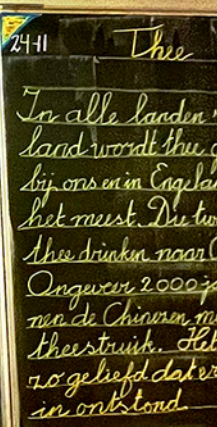 24-11
Thee
In alle landen
land wordt thee
bij ons en in Engela
het meest. Die tw
thee drinken naar
Ongeveer 2000 ja
nen de Chinezen m
theestruik. Het
zo geliefd dat er
in ontstond